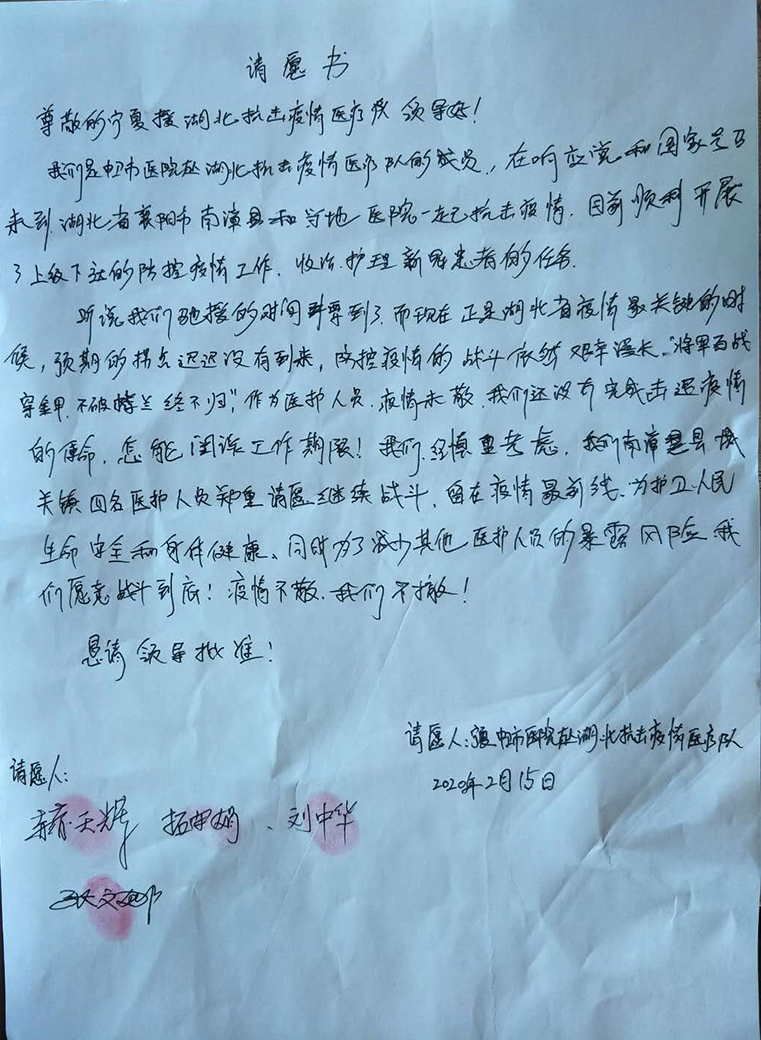 请愿书
尊敬的宁夏援湖北抗击疫情医疗队领导好！
我们是中卫市医院赴湖北抗击疫情医疗队的成员，在响应党和国家号召
来到湖北省襄阳市南漳县和当地医院一起抗击疫情，目前顺利开展
了上级下达的防控疫情工作、收治、护理新冠患者的任务。
听说我们驰援的时间要到了，而现在正是湖北省疫情最关键的时
候，预期的拐点迟迟没有到来，防控疫情的战斗依然艰辛漫长。"将军百战
穿金甲，不破楼兰终不归"，作为医护人员，疫情未散，我们还没有完成击退疫情
的使命，怎能囿该工作期限！我们经慎重考虑，我们南漳县城
关镇四名医护人员郑重请愿继续战斗，留在疫情最前线、为护卫人民
生命安全和身体健康、同时为了减少其他医护人员的暴露风险我
们愿意战斗到底！疫情不散，我们不撤！
恳请领导批准！
请愿人：中卫市医院赴湖北抗击疫情医疗队
2020年2月15日
请愿人：
天辉 拓 娟、刘中华
张文